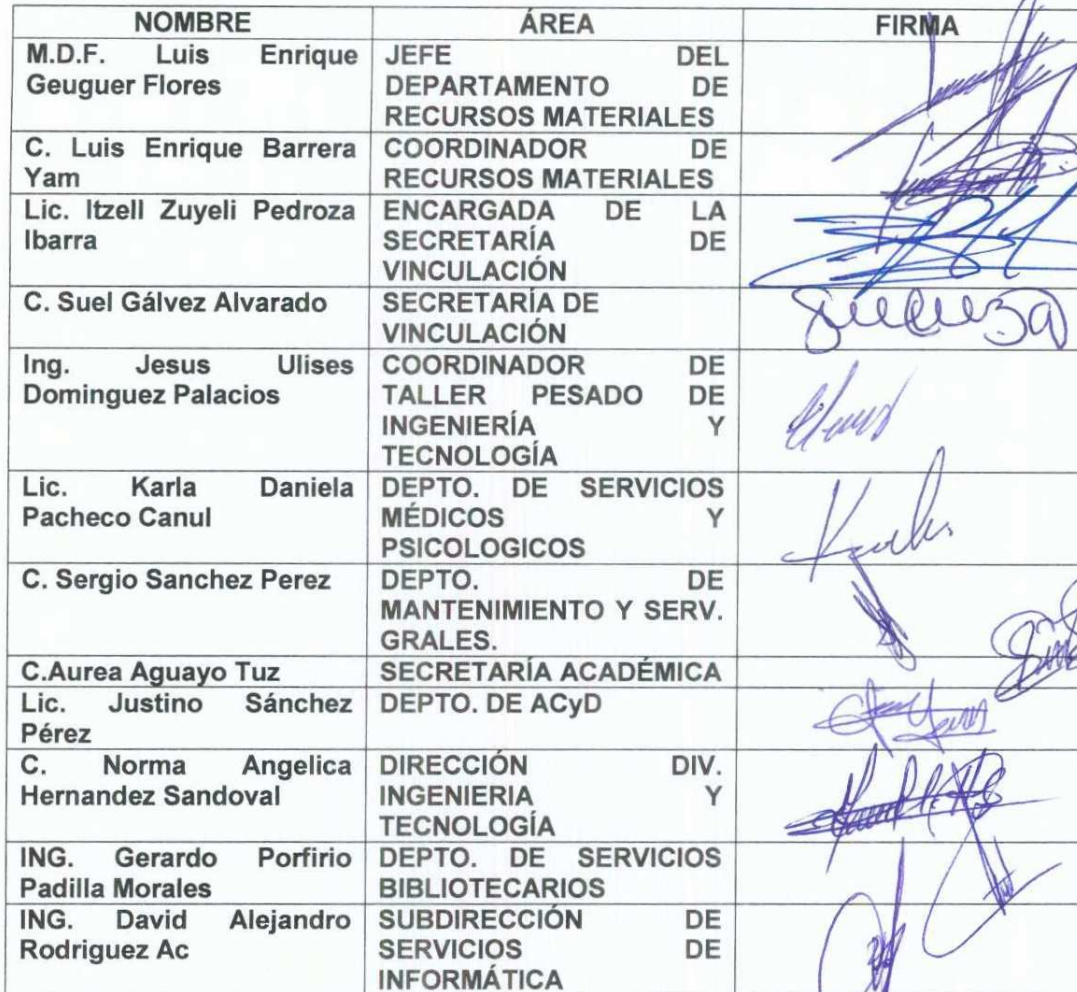 NOMBRE ÁREA FIRMA
M.D.F. Luis Enrique
Geuguer Flores
JEFE DEL
DEPARTAMENTO DE
RECURSOS MATERIALES
C. Luis Enrique Barrera
Yam
COORDINADOR DE
RECURSOS MATERIALES
Lic. Itzell Zuyeli Pedroza
Ibarra
ENCARGADA DE LA
SECRETARÍA DE
VINCULACIÓN
C. Suel Gálvez Alvarado
SECRETARÍA DE
VINCULACIÓN
Ing. Jesus Ulises
Dominguez Palacios
COORDINADOR DE
TALLER PESADO DE
INGENIERÍA Y
TECNOLOGÍA
Lic. Karla Daniela
Pacheco Canul
DEPTO. DE SERVICIOS
MÉDICOS Y
PSICOLOGICOS
C. Sergio Sanchez Perez
DEPTO. DE
MANTENIMIENTO Y SERV.
GRALES.
C.Aurea Aguayo Tuz
SECRETARÍA ACADÉMICA
Lic. Justino Sánchez
Pérez
DEPTO. DE ACyD
C. Norma Angelica
Hernandez Sandoval
DIRECCIÓN DIV.
INGENIERIA Y
TECNOLOGÍA
ING. Gerardo Porfirio
Padilla Morales
DEPTO. DE SERVICIOS
BIBLIOTECARIOS
ING. David Alejandro
Rodriguez Ac
SUBDIRECCIÓN DE
SERVICIOS DE
INFORMÁTICA